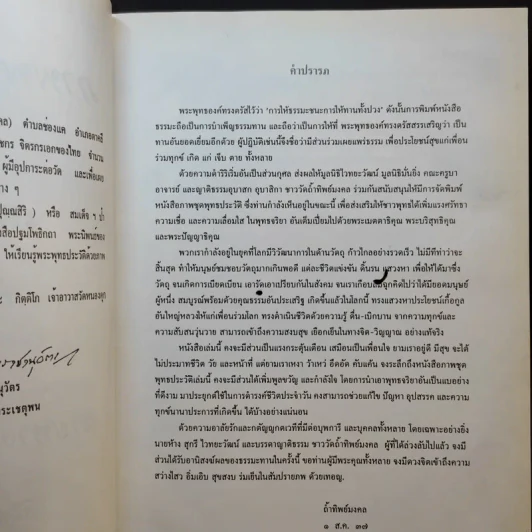 คล) ตำบลช่องแค อำเภอตาคลี
ชกร จิตรกรเอกของไทย จำนวน
ผู้มีอุปการะต่อวัด และเพื่อเผย
าง ๆ
ปุณฺณสิริ) หรือ สมเด็จฯ ป๋า
สือปฐมโพธิกถา พระนิพนธ์ของ
ให้เรียนรู้พระพุทธประวัติด้วยภาพ
ะ กิตฺติโก เจ้าอาวาสวัดหนองตุก
นุวัตร
ระเชตุพน
คำปรารภ
พระพุทธองค์ทรงตรัสไว้ว่า "การให้ธรรมะชนะการให้ทานทั้งปวง" ดังนั้นการพิมพ์หนังสือ
ธรรมะถือเป็นการบำเพ็ญธรรมทาน และถือว่าเป็นการให้ที่ พระพุทธองค์ทรงตรัสสรรเสริญว่า เป็น
ทานอันยอดเยี่ยมอีกด้วย ผู้ปฏิบัติเช่นนี้จึงชื่อว่ามีส่วนร่วมเผยแพร่ธรรม เพื่อประโยชน์สุขแก่เพื่อน
ร่วมทุกข์ เกิด แก่ เจ็บ ตาย ทั้งหลาย
ด้วยความดำริริเริ่มอันเป็นส่วนกุศล ส่งผลให้มูลนิธิไวทยะวัฒน์ มูลนิธิมั่นยิ่ง คณะครูบา
อาจารย์ และญาติธรรมอุบาสก อุบาสิกา ชาววัดถ้ำทิพย์มงคล ร่วมกันสนับสนุนให้มีการจัดพิมพ์
หนังสือภาพชุดพุทธประวัติ ซึ่งท่านกำลังเห็นอยู่ในขณะนี้ เพื่อส่งเสริมให้ชาวพุทธได้เพิ่มแรงศรัทธา
ความเชื่อ และความเลื่อมใส ในพุทธจริยา อันเต็มเปี่ยมไปด้วยพระเมตตาธิคุณ พระบริสุทธิคุณ
และพระปัญญาธิคุณ
พวกเรากำลังอยู่ในยุคที่โลกมีวิวัฒนาการในด้านวัตถุ ก้าวไกลอย่างรวดเร็ว ไม่มีทีท่าว่าจะ
สิ้นสุด ทำให้มนุษย์ชมชอบวัตถุมากเกินพอดี แต่ละชีวิตแข่งขัน ดิ้นรน แสวงหา เพื่อให้ได้มาซึ่ง
วัตถุ จนเกิดการเบียดเบียน เอารัดเอาเปรียบกันในสังคม จนเราเกือบลืมฉุกคิดไปว่าได้มียอดมนุษย์
ผู้หนึ่ง สมบูรณ์พร้อมด้วยคุณธรรมอันประเสริฐ เกิดขึ้นแล้วในโลกนี้ ทรงแสวงหาประโยชน์เกื้อกูล
อันใหญ่หลวงให้แก่เพื่อนร่วมโลก ทรงดำเนินชีวิตด้วยความรู้ ตื่น-เบิกบาน จากความทุกข์และ
ความสับสนวุ่นวาย สามารถเข้าถึงความสงบสุข เยือกเย็นในทางจิต-วิญญาณ อย่างแท้จริง
หนังสือเล่มนี้ คงจะมีส่วนเป็นแรงกระตุ้นเตือน เสมือนเป็นเพื่อนใจ ยามเราอยู่ดี มีสุข จะได้
ไม่ประมาทชีวิต วัย และหน้าที่ แต่ยามเราเหงา ว้าเหว่ อึดอัด คับแค้น จงระลึกถึงหนังสือภาพชุด
พุทธประวัติเล่มนี้ คงจะมีส่วนได้เพิ่มพูลขวัญ และกำลังใจ โดยการนำเอาพุทธจริยาอันเป็นแบบอย่าง
ที่ดีงาม มาประยุกต์ใช้ในการดำรงค์ชีวิตประจำวัน คงสามารถช่วยแก้ไข ปัญหา อุปสรรค และความ
ทุกข์นานาประการที่เกิดขึ้น ได้บ้างอย่างแน่นอน
ด้วยความอาลัยรักและกตัญญูกตเวทีที่มีต่อบุพการี และบุคคลทั้งหลาย โดยเฉพาะอย่างยิ่ง
นายห้าง สุกรี ไวทยะวัฒน์ และบรรดาญาติธรรม ชาววัดถ้ำทิพย์มงคล ผู้ที่ได้ล่วงลับไปแล้ว จงมี
ส่วนได้รับอานิสงฆ์ผลของธรรมะทานในครั้งนี้ ขอท่านผู้มีพระคุณทั้งหลาย จงมีดวงจิตเข้าถึงความ
สว่างไสว อิ่มเอิบ สุขสงบ ร่มเย็นในสัมปรายภพ ด้วยเทอญ.
ถ้ำทิพย์มงคล
๑ ส.ค. ๓๗